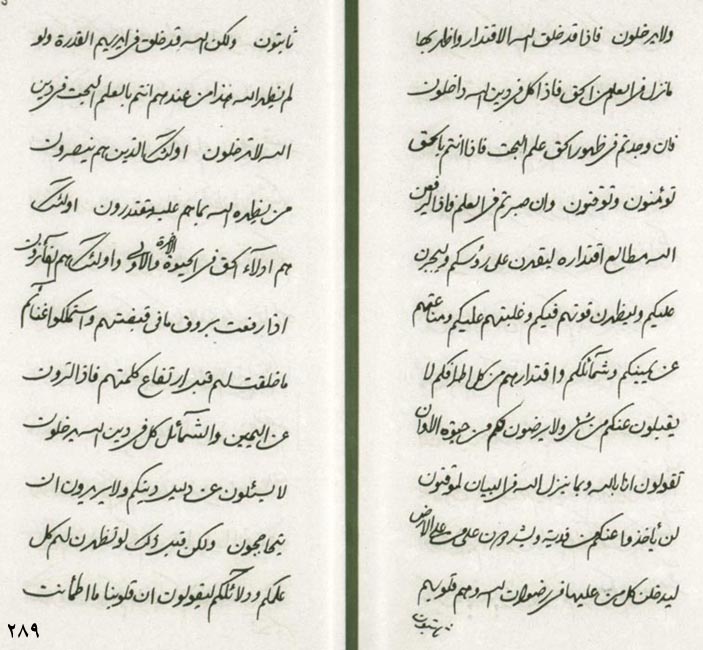 ولا يدخلون فاذا قد خلق الله الاقتدار واظهر بها
ما نزل في العلم من الحق فاذا كل في دين الله داخلون
فان وجدتم في ظهور الحق علم البحت فاذا انتم بالحق
تؤمنون وتوقنون وان صبرتم في العلم فاذا ليرفعن
الله مطالع اقتداره ليقدرن على رؤسكم وليجرن
عليكم وليظهرن قوتهم فيكم وغلبتهم عليكم ومناعتهم
عن يمينكم وشمائلكم واقتدارهم من كل اطرافكم لا
يقبلون عنكم من شيء ولا يرضون لكم من حيوة الا وان
تقولون انا بالله وبما ينزل الله في البيان لموقنون
لن يأخذوا عنكم من فدية ولا من على الارض
ليدخلن كل من عليها في رضوان الله وهم قلوبهم
ثابتون ولكن الله قد خلق في ايديهم القدرة ولو
لم يظهر الله هذا من عندهم انتم بالعلم البحت في دين
الله لا تدخلون اولئك الذين هم ينصرون
من يظهره الله بما هم عليه مقتدرون اولئك
هم ادلآء الحق في الحيوة الآخرة والاولى واولئك هم الفآئزون
اذا رفعت بروف ما في قبضتهم واستملكوا غنائكم
ما خلقت لهم قبل ارتفاع كلمتهم فاذا لترون
عن اليمين والشمائل كل في دين الله يدخلون
لا يسئلون عن دليل دينكم ولا يريدون ان
يتحاججون ولكن قبل ذلك لو تظهرن لهم كل
علمكم ودلائلكم ليقولون ان قلوبنا ما اطمأنت
٢٨٩